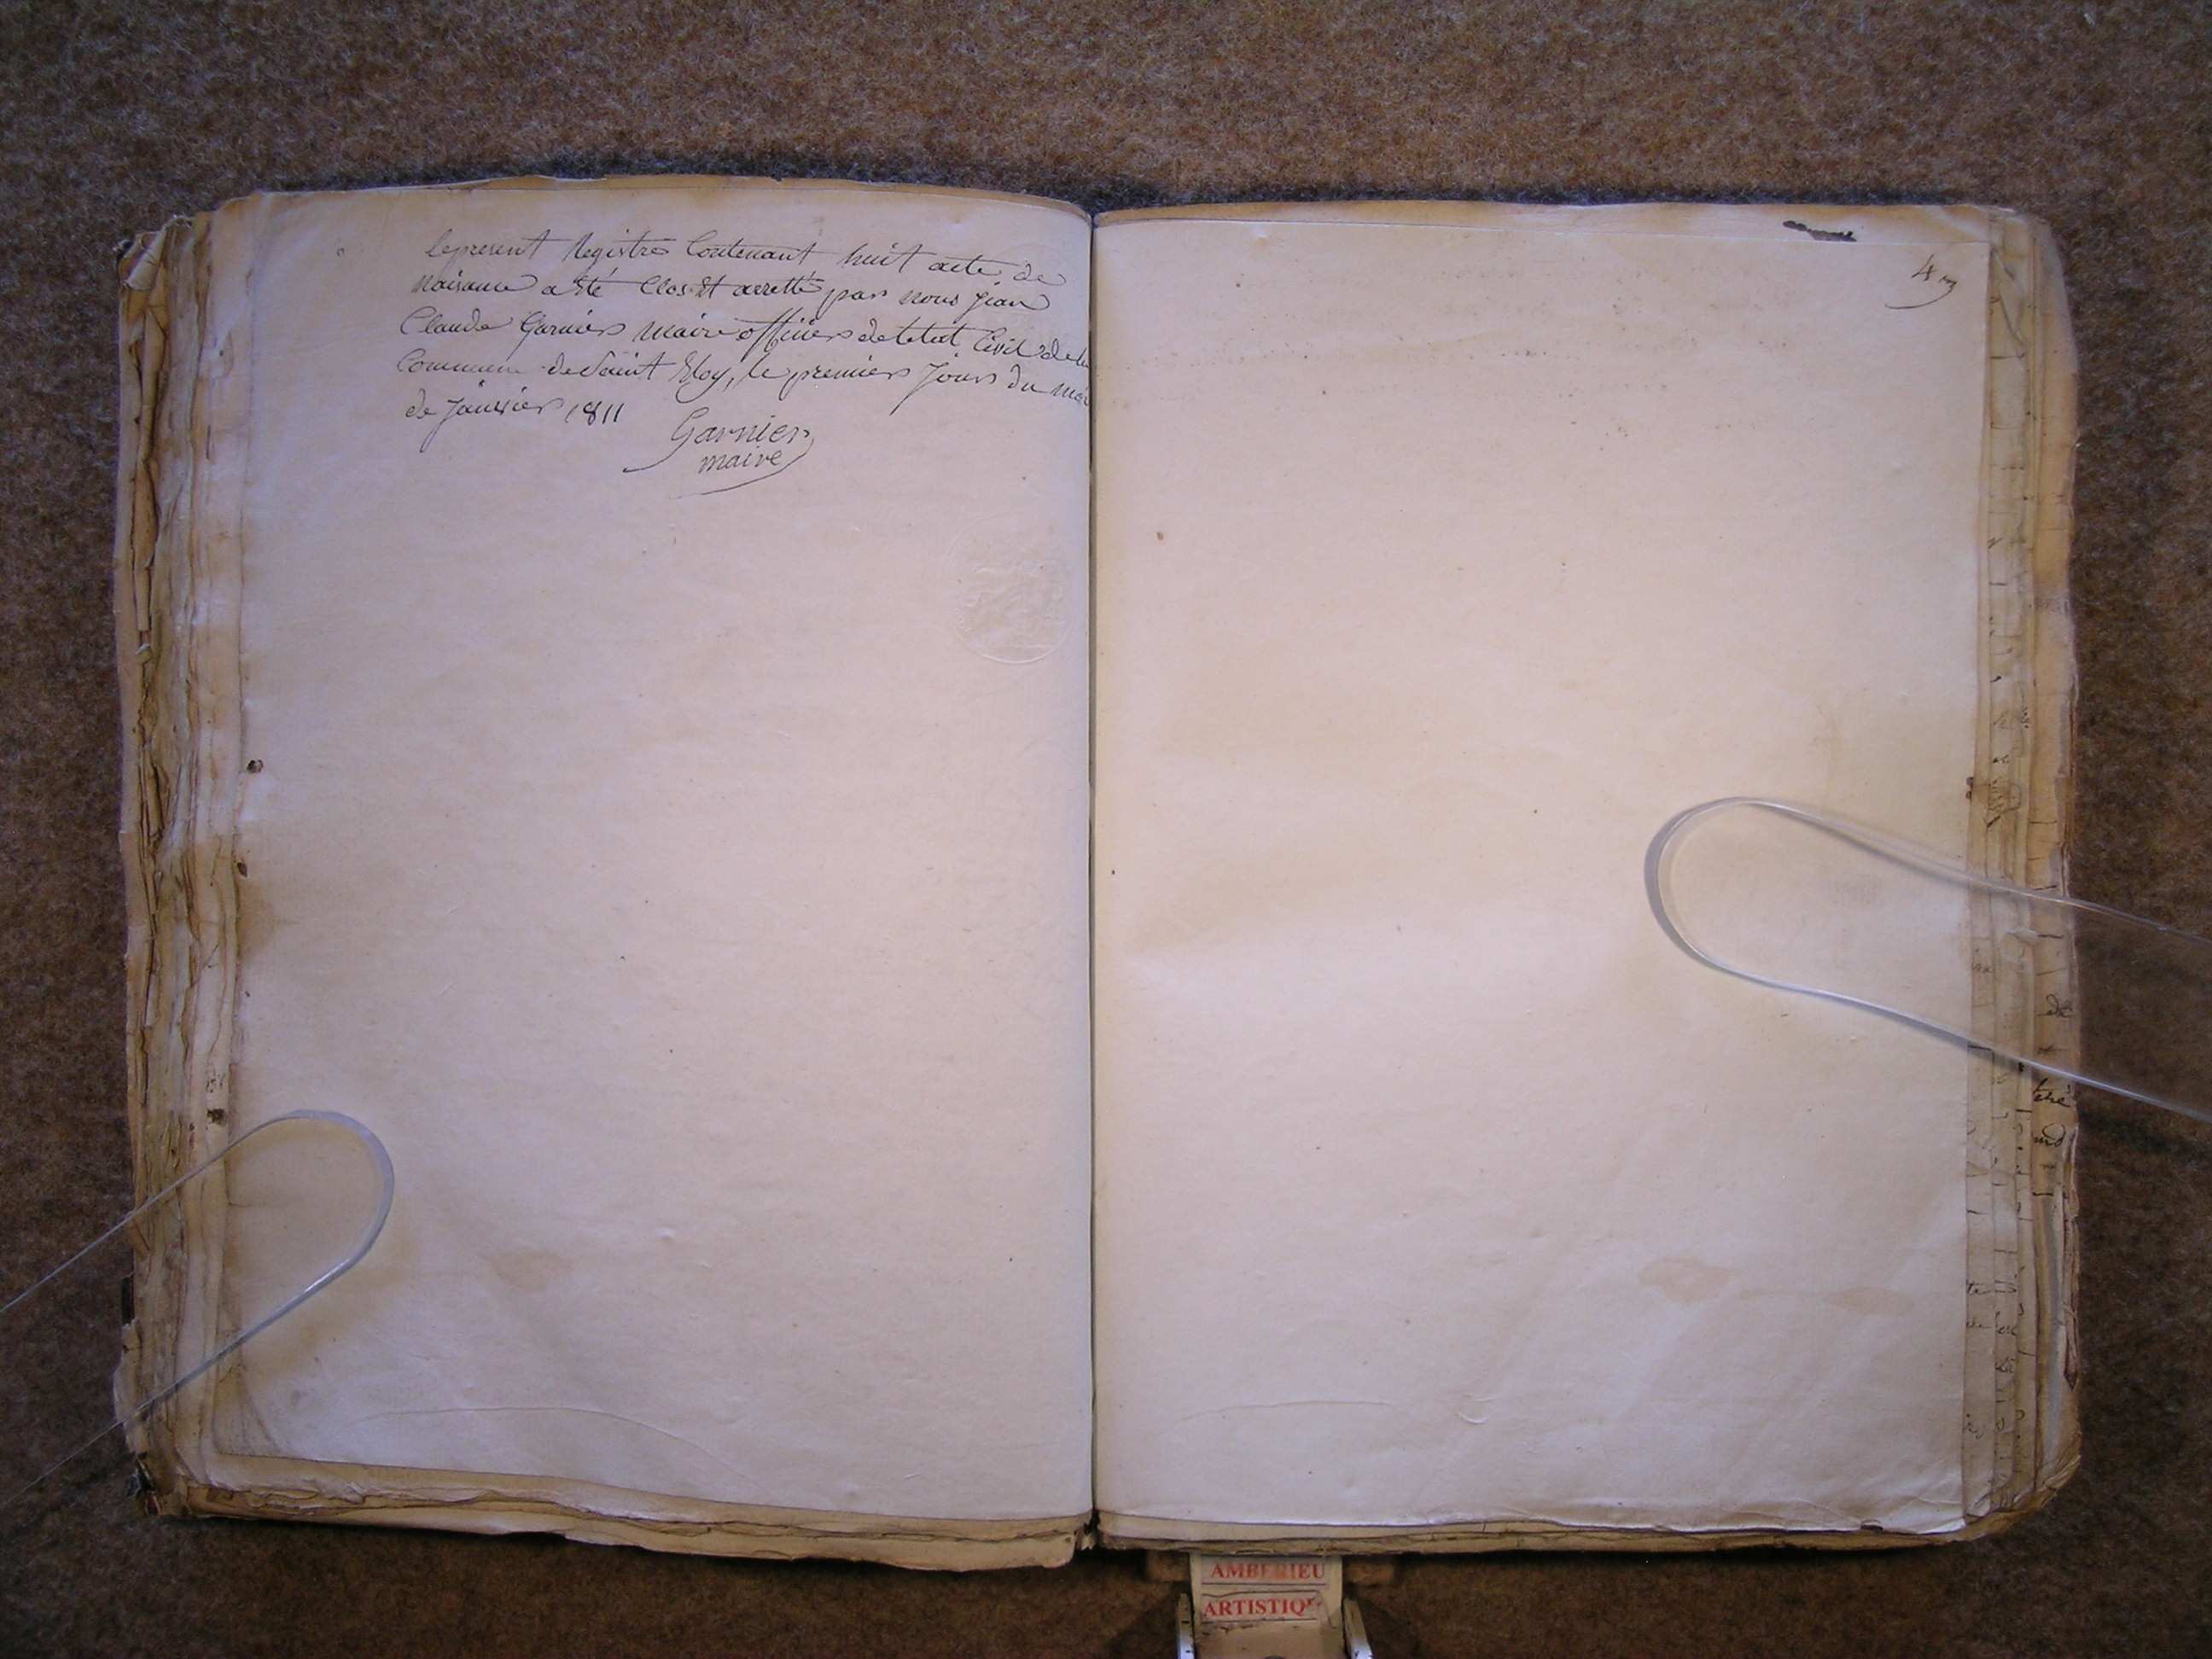 lepresent Registre Contenant huit acte de
naisance a été Clos Et arretté par nous jean
Claude Garnier maire officier detetat Civil dela
Commune de Saint Eloy, le premier jour du moi
de janvier 1811
Garnier
maire
4
AMBERIEU
ARTISTIQ